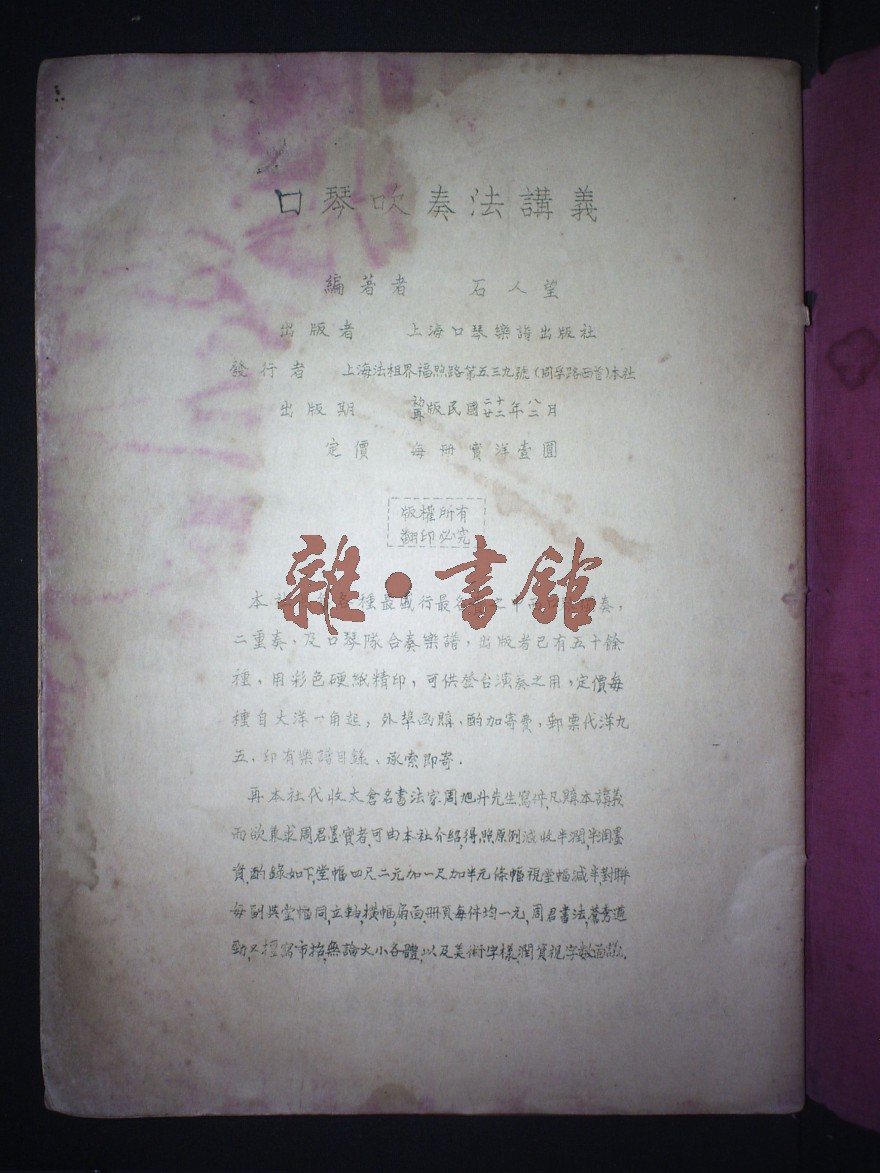 口琴吹奏法講義
編著者 石人望
出版者 上海口琴樂譜出版社
發行者 上海法租界福煦路第五三九號(同孚路西首)本社
出版期 初再版民國二十廿二年八二月
定價 每冊實洋壹圓
版權所有
翻印必究
雜·書館
本社 各種最盛行最名 之中西口琴獨奏,
二重奏,及口琴隊合奏樂譜,出版者已有五十餘
種、用彩色硬紙精印,可供登台演奏之用,定價每
種自大洋一角起,外埠函購、酌加寄費,郵票代洋九
五、印有樂譜目錄、承索即寄.
再本社代收太倉名書法家周旭升先生寫件,凡購本講義
而欲兼求周君墨寶者,可由本社介紹,得照原例減收半潤,半潤墨
費,酌錄如下,堂幅四尺二元加一尺加半元條幅視堂幅減半,對聯
每副與堂幅同,立軸,橫幅,扇面,冊頁每件均一元,周君書法,蒼秀遒
勁,又擅寫市招,無論大小各體,以及美術字樣,潤資視字數面議.